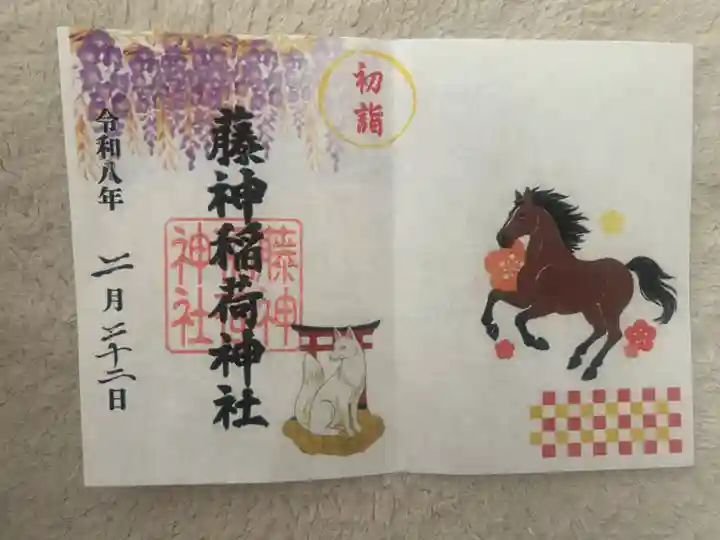 初詣
藤神稲荷神社
藤神
稲荷
神社
令和八年 二月二十二日